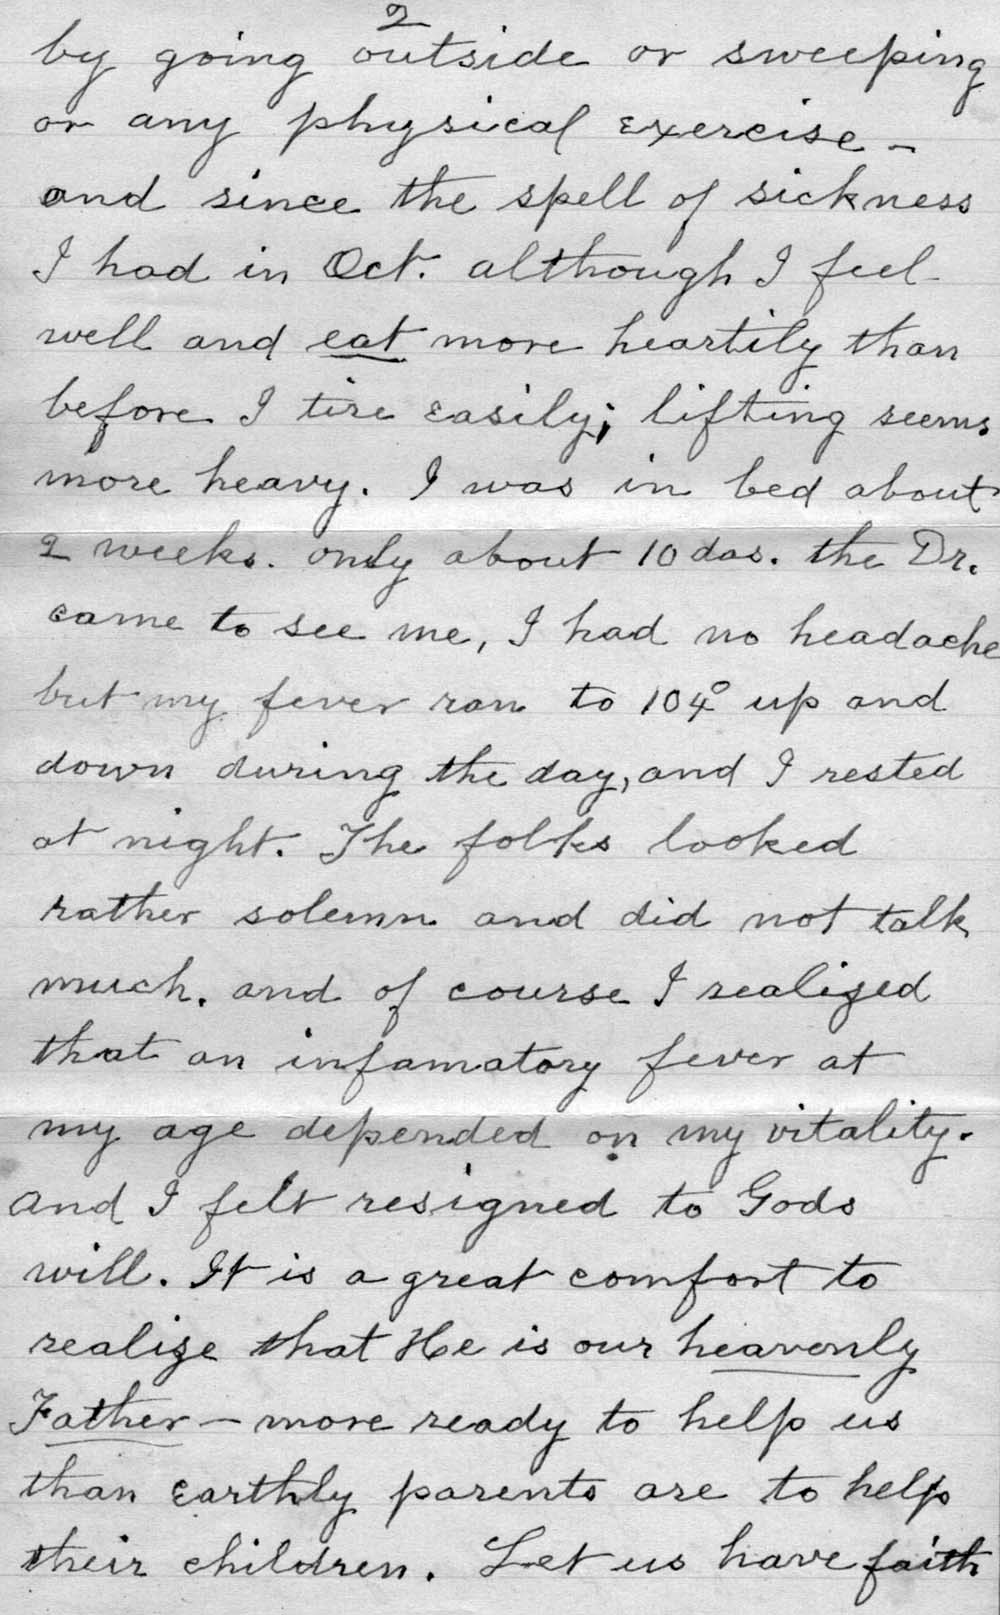 2
by going outside or sweeping
or any physical exercise –
and since the spell of sickness
I had in Oct. although I feel
well and eat more heartily than
before I tire easily; lifting seems
more heavy. I was in bed about
2 weeks. only about 10 das. the Dr.
came to see me, I had no headache
but my fever ran to 104° up and
down during the day, and I rested
at night. The folks looked
rather solemn and did not talk
much. and of course I realized
that an infamatory fever at
my age depended on my vitality.
and I felt resigned to Gods
will. It is a great comfort to
realize that He is our heavenly
Father – more ready to help us
than earthly parents are to help
their children. Let us have faith